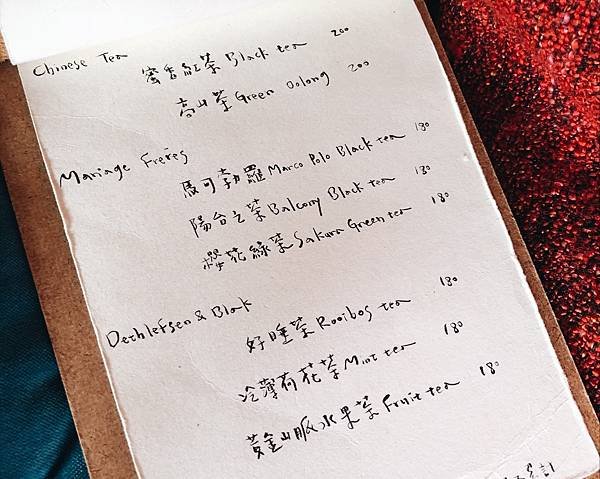 Chinese Tea
蜜香紅茶 Black tea 200
高山茶 Green Oolong 200
Mariage Freres
馬可勃羅 Marco Polo Black tea 180
陽台之茶 Balcony Black tea 180
櫻花綠茶 Sakura Green tea 180
Dethlefsen & Blak
好睡茶 Rooibos tea 180
冷薄荷花茶 Mint tea 180
黃金山脈水果茶 Fruit tea 180